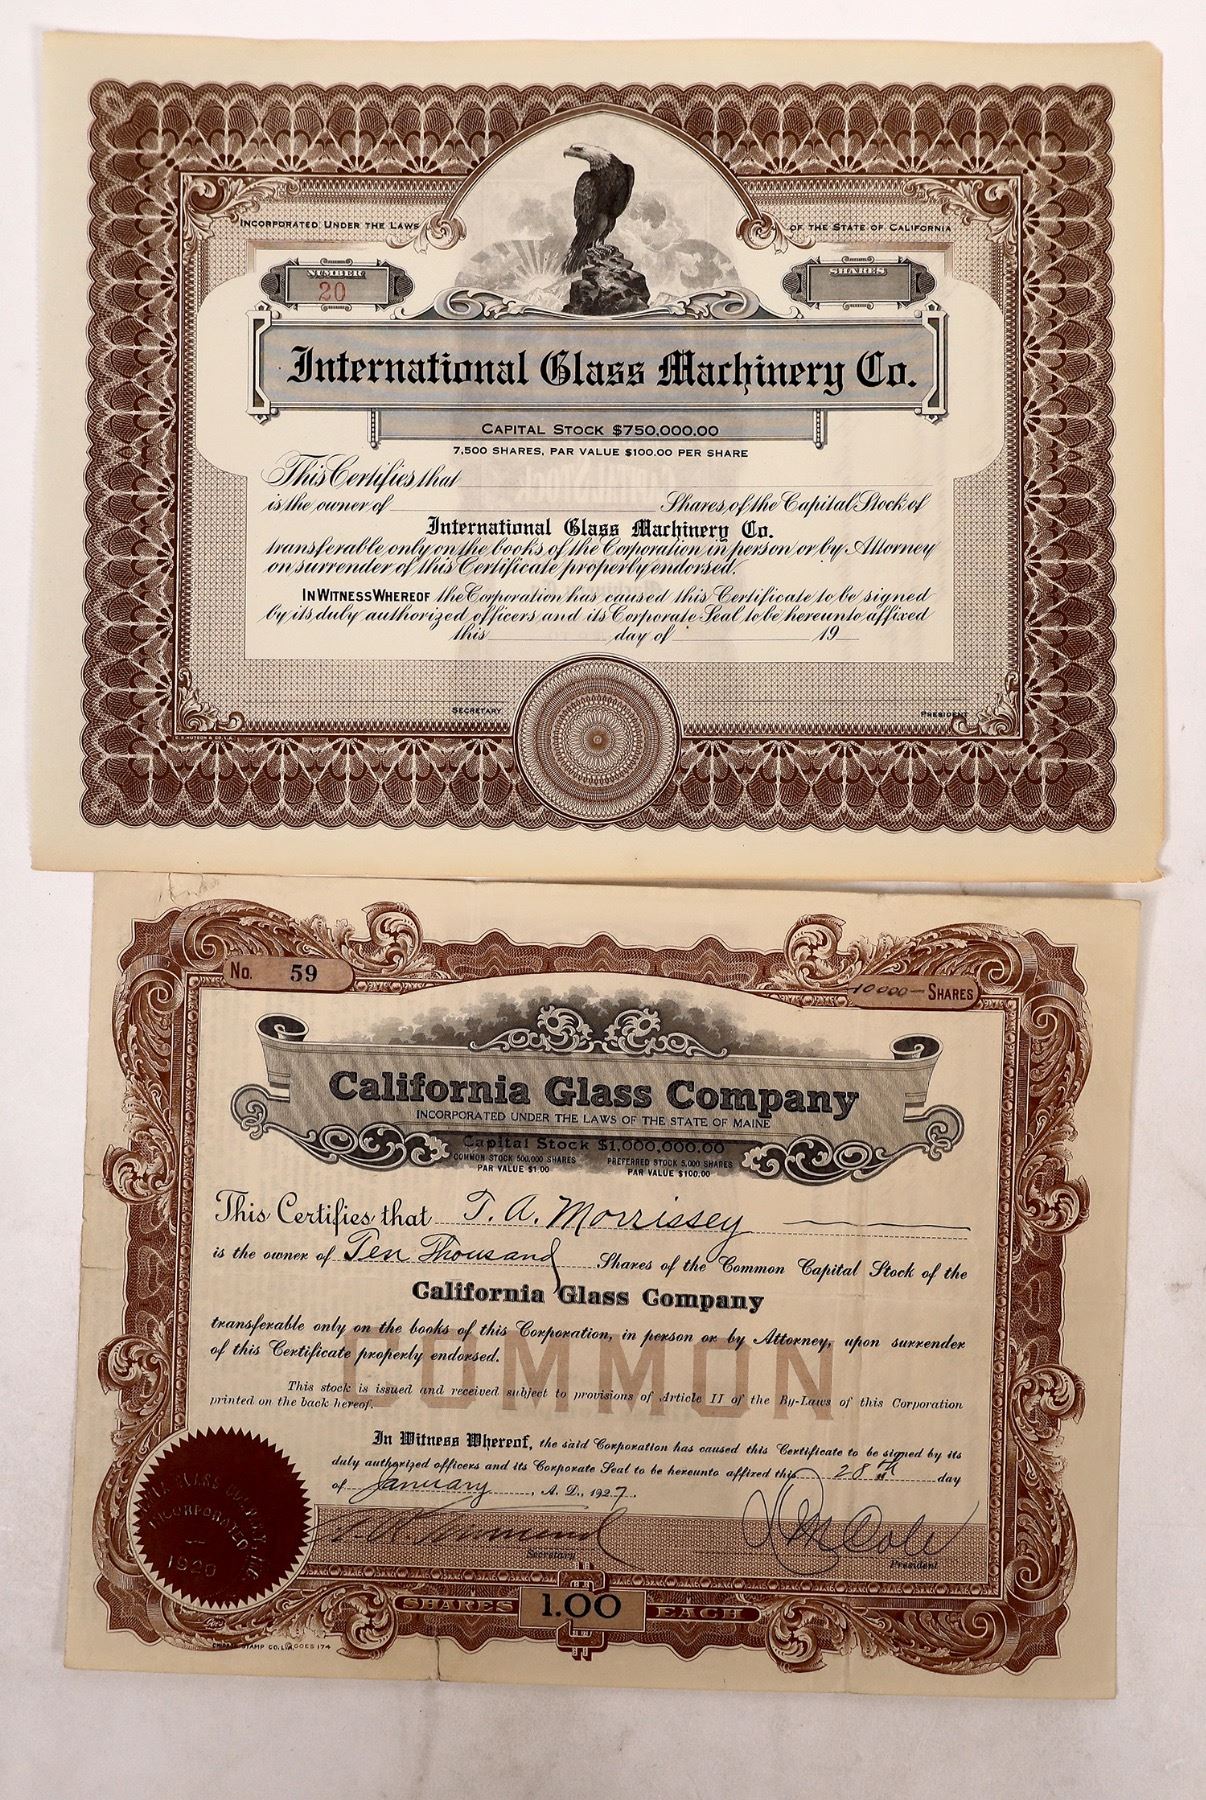 INCORPORATED UNDER THE LAWS OF THE STATE OF CALIFORNIA
NUMBER
20
SHARES
International Glass Machinery Co.
CAPITAL STOCK $750,000.00
7,500 SHARES, PAR VALUE $100.00 PER SHARE
This Certifies that
is the owner of Shares of the Capital Stock of
International Glass Machinery Co.
transferable only on the books of the Corporation in person or by Attorney
on surrender of this Certificate properly endorsed.
IN WITNESS WHEREOF the Corporation has caused this Certificate to be signed
by its duly authorized officers and its Corporate Seal to be hereunto affixed
this day of 19
SECRETARY PRESIDENT
No. 59
10000— SHARES
California Glass Company
INCORPORATED UNDER THE LAWS OF THE STATE OF MAINE
Capital Stock $1,000,000.00
COMMON STOCK 500,000 SHARES PREFERRED STOCK 5,000 SHARES
PAR VALUE $1.00 PAR VALUE $100.00
This Certifies that T. A. Morrissey
is the owner of Ten Thousand Shares of the Common Capital Stock of the
California Glass Company
transferable only on the books of this Corporation, in person or by Attorney, upon surrender
of this Certificate properly endorsed.
COMMON
This stock is issued and received subject to provisions of Article II of the By-Laws of this Corporation
printed on the back hereof.
In Witness Whereof, the said Corporation has caused this Certificate to be signed by its
duly authorized officers and its Corporate Seal to be hereunto affixed this 28th day
of January, A. D., 1927.
Secretary President
INCORPORATED
1920
SHARES 1.00 EACH
STAMP CO. L.A. GOES 174